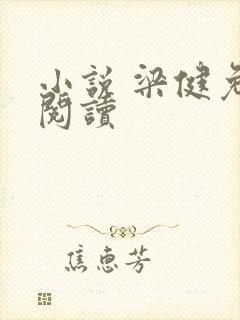 小説 梁健免
閱讀
焦惠芳